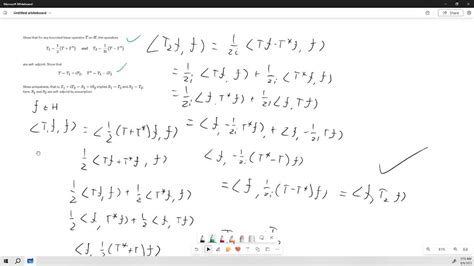 Microsoft Whiteboard
Untitled whiteboard
Show that for any bounded linear operator T on H, the operators
T₁ = 1/2 (T + T*) and T₂ = 1/2i (T − T*)
are self-adjoint. Show that
T = T₁ + iT₂, T* = T₁ − iT₂.
Show uniqueness, that is, T₁ + iT₂ = S₁ + iS₂ implies S₁ = T₁ and S₂ = T₂;
here, S₁ and S₂ are self-adjoint by assumption.
f ∈ H
⟨T₁f, f⟩ = ⟨1/2 (T+T*)f, f⟩
1/2 ⟨Tf+T*f, f⟩
1/2 ⟨Tf, f⟩ + 1/2 ⟨T*f, f⟩
1/2 ⟨f, T*f⟩ + 1/2 ⟨f, Tf⟩
⟨f, 1/2 (T*+T)f⟩
⟨T₂f, f⟩ = 1/2i ⟨Tf−T*f, f⟩
= 1/2i ⟨Tf, f⟩ + 1/2i ⟨T*f, f⟩
= 1/2i ⟨f, T*f⟩ + 1/2i ⟨f, Tf⟩
= ⟨f, −1/2i T*f⟩ + ⟨f, −1/2i Tf⟩
⟨f, −1/2i (T*−T)f⟩
= ⟨f, 1/2i (T−T*)f⟩ = ⟨f, T₂f⟩